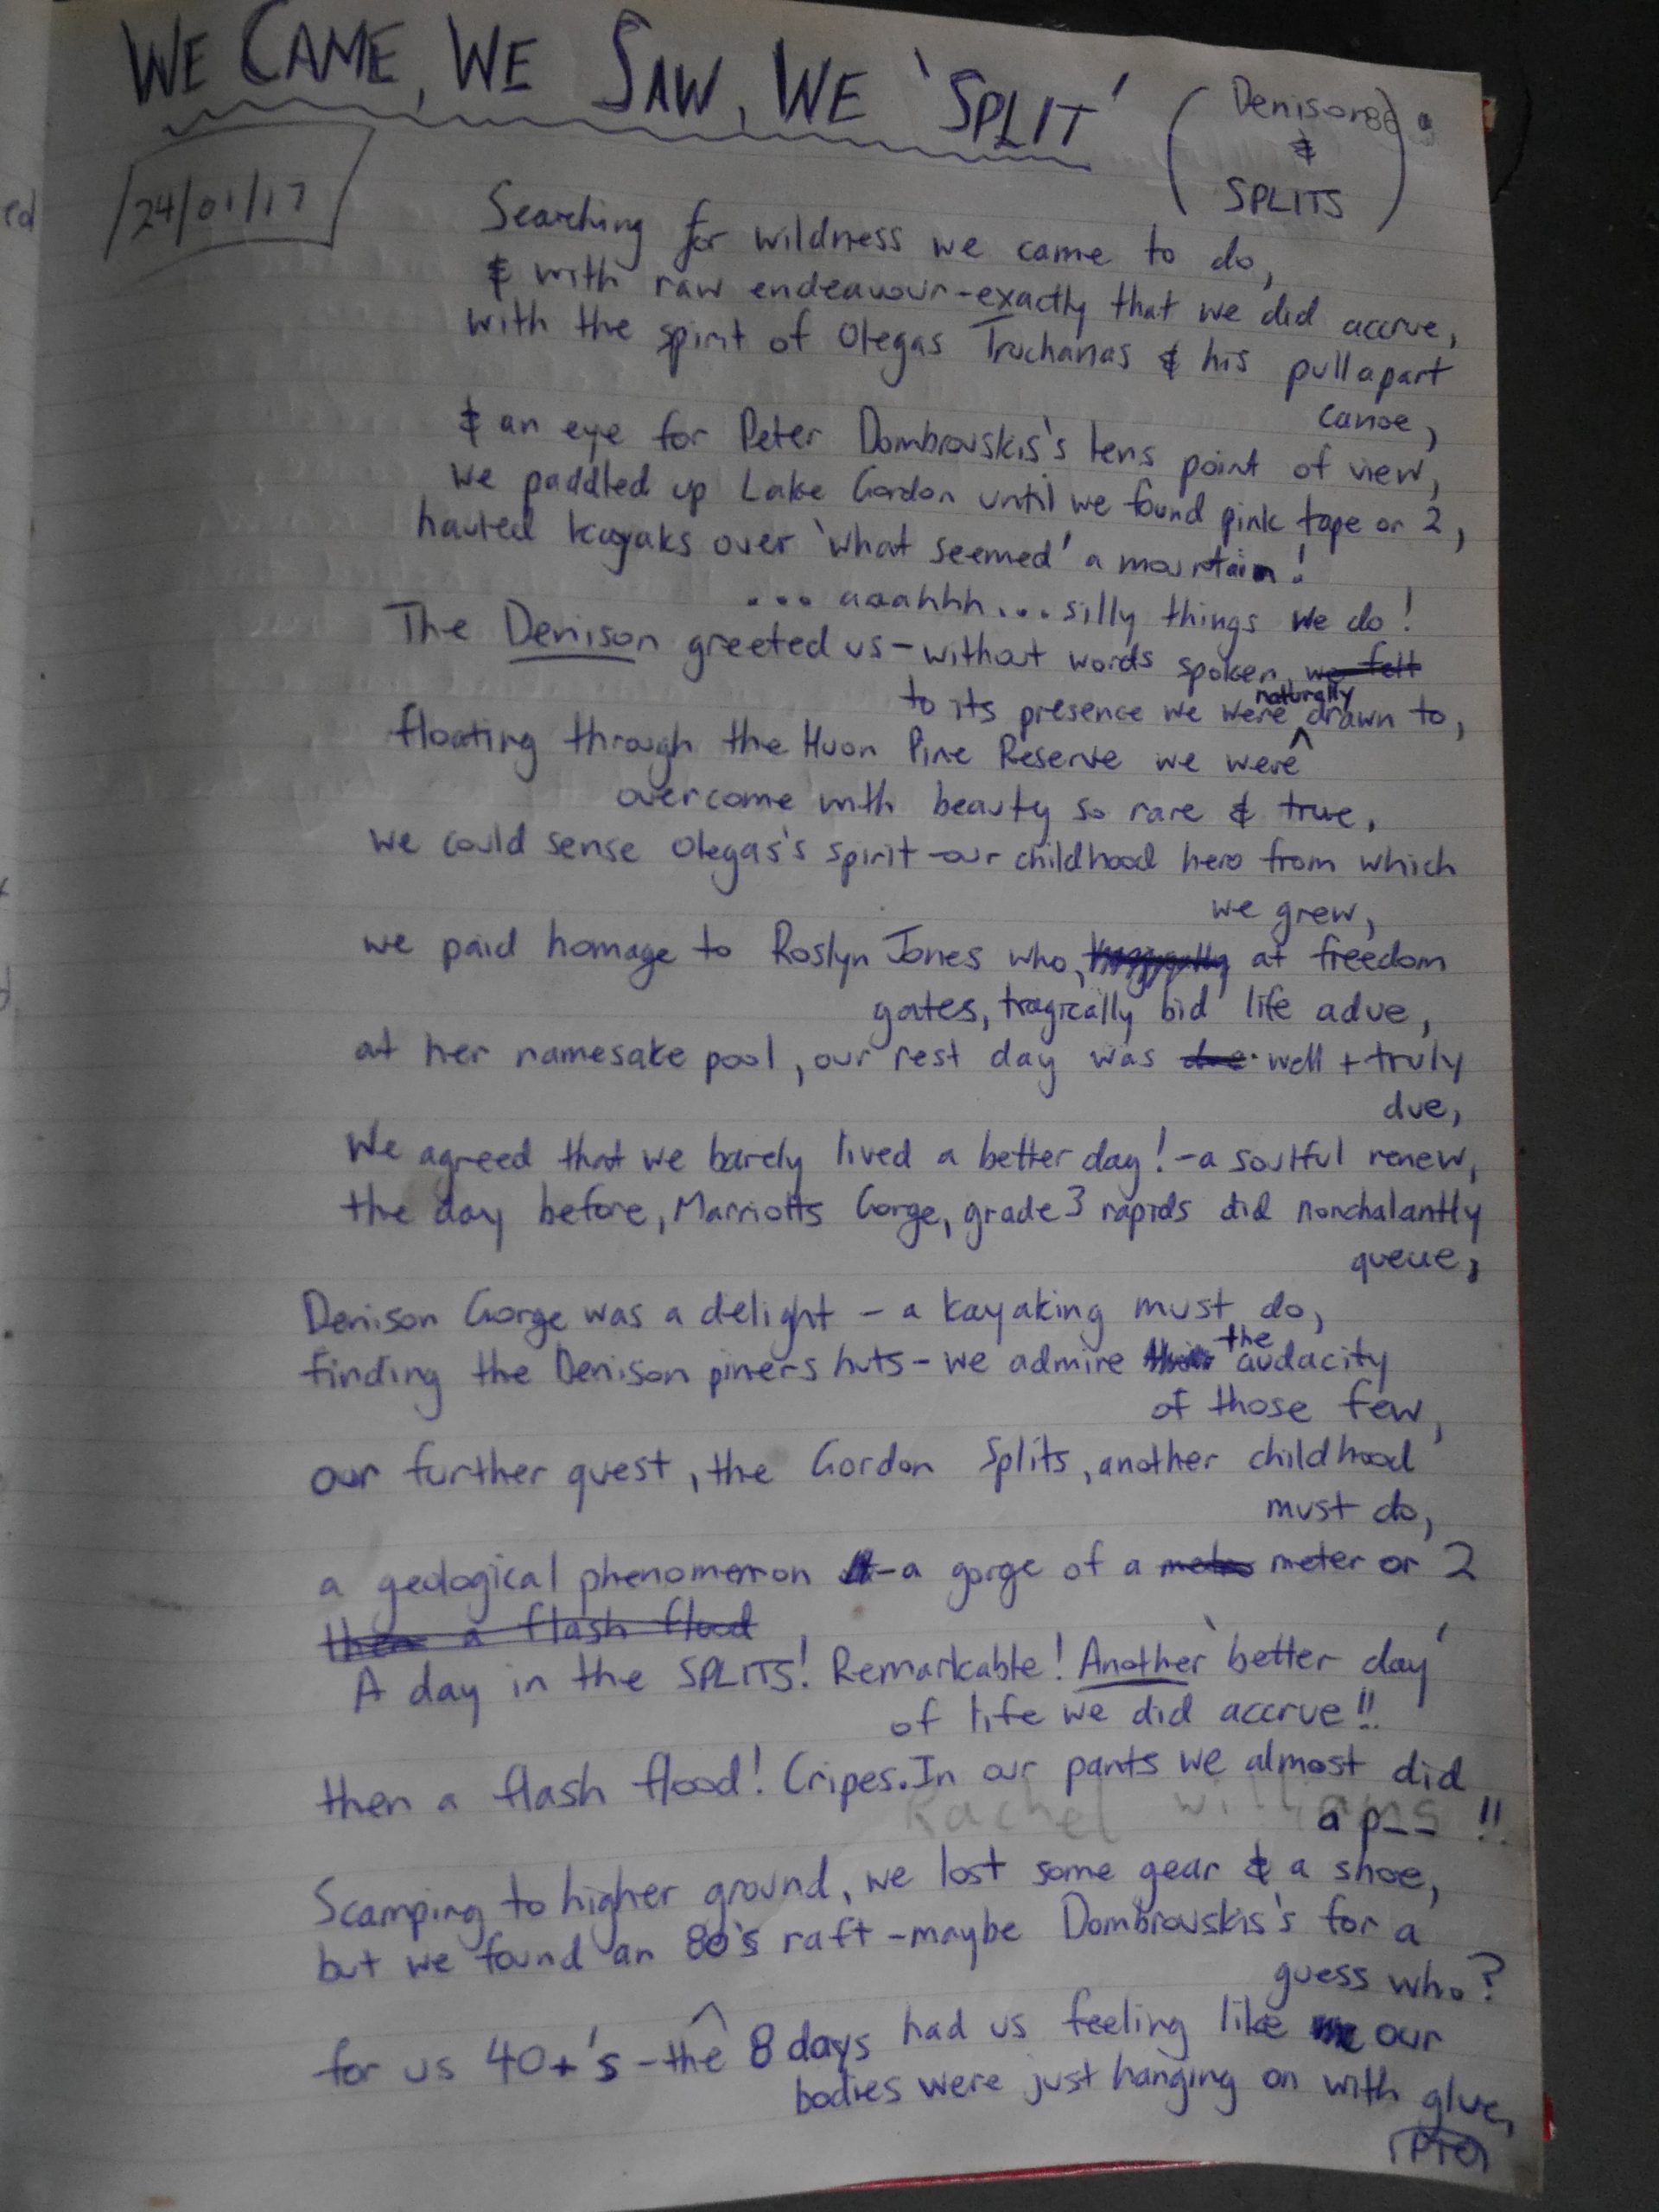 WE CAME, WE SAW, WE 'SPLIT'
(Denison &
SPLITS)
24/01/17
Searching for wildness we came to do,
& with raw endeavour - exactly that we did accrue,
with the spirit of Olegas Truchanas & his pull apart
canoe,
& an eye for Peter Dombrovskis's lens point of view,
we paddled up Lake Gordon until we found pink tape or 2,
hauled kayaks over 'what seemed' a mountain!
... aaahhh... silly things we do!
The Denison greeted us - without words spoken, we felt
to its presence we were naturally drawn to,
floating through the Huon Pine Reserve we were
overcome with beauty so rare & true,
we could sense Olegas's spirit - our childhood hero from which
we grew,
we paid homage to Roslyn Jones who, at freedom
gates, tragically bid life adue,
at her namesake pool, our rest day was due well + truly
due,
We agreed that we barely lived a better day! - a soulful renew,
the day before, Marriotts Gorge, grade 3 rapids did nonchalantly
queue,
Denison Gorge was a delight - a kayaking must do,
finding the Denison piners huts - we admire the audacity
of those few,
our further quest, the Gordon Splits, another childhood
must do,
a geological phenomenon - a gorge of a meter or 2
then a flash flood
A day in the SPLITS! Remarkable! Another 'better day'
of life we did accrue!!
then a flash flood! Cripes. In our pants we almost did
a p_ _ !!
Rachel Williams
Scamping to higher ground, we lost some gear & a shoe,
but we found an 80's raft - maybe Dombrovskis's for a
guess who?
for us 40+'s - the 8 days had us feeling like our
bodies were just hanging on with glue,
PTO